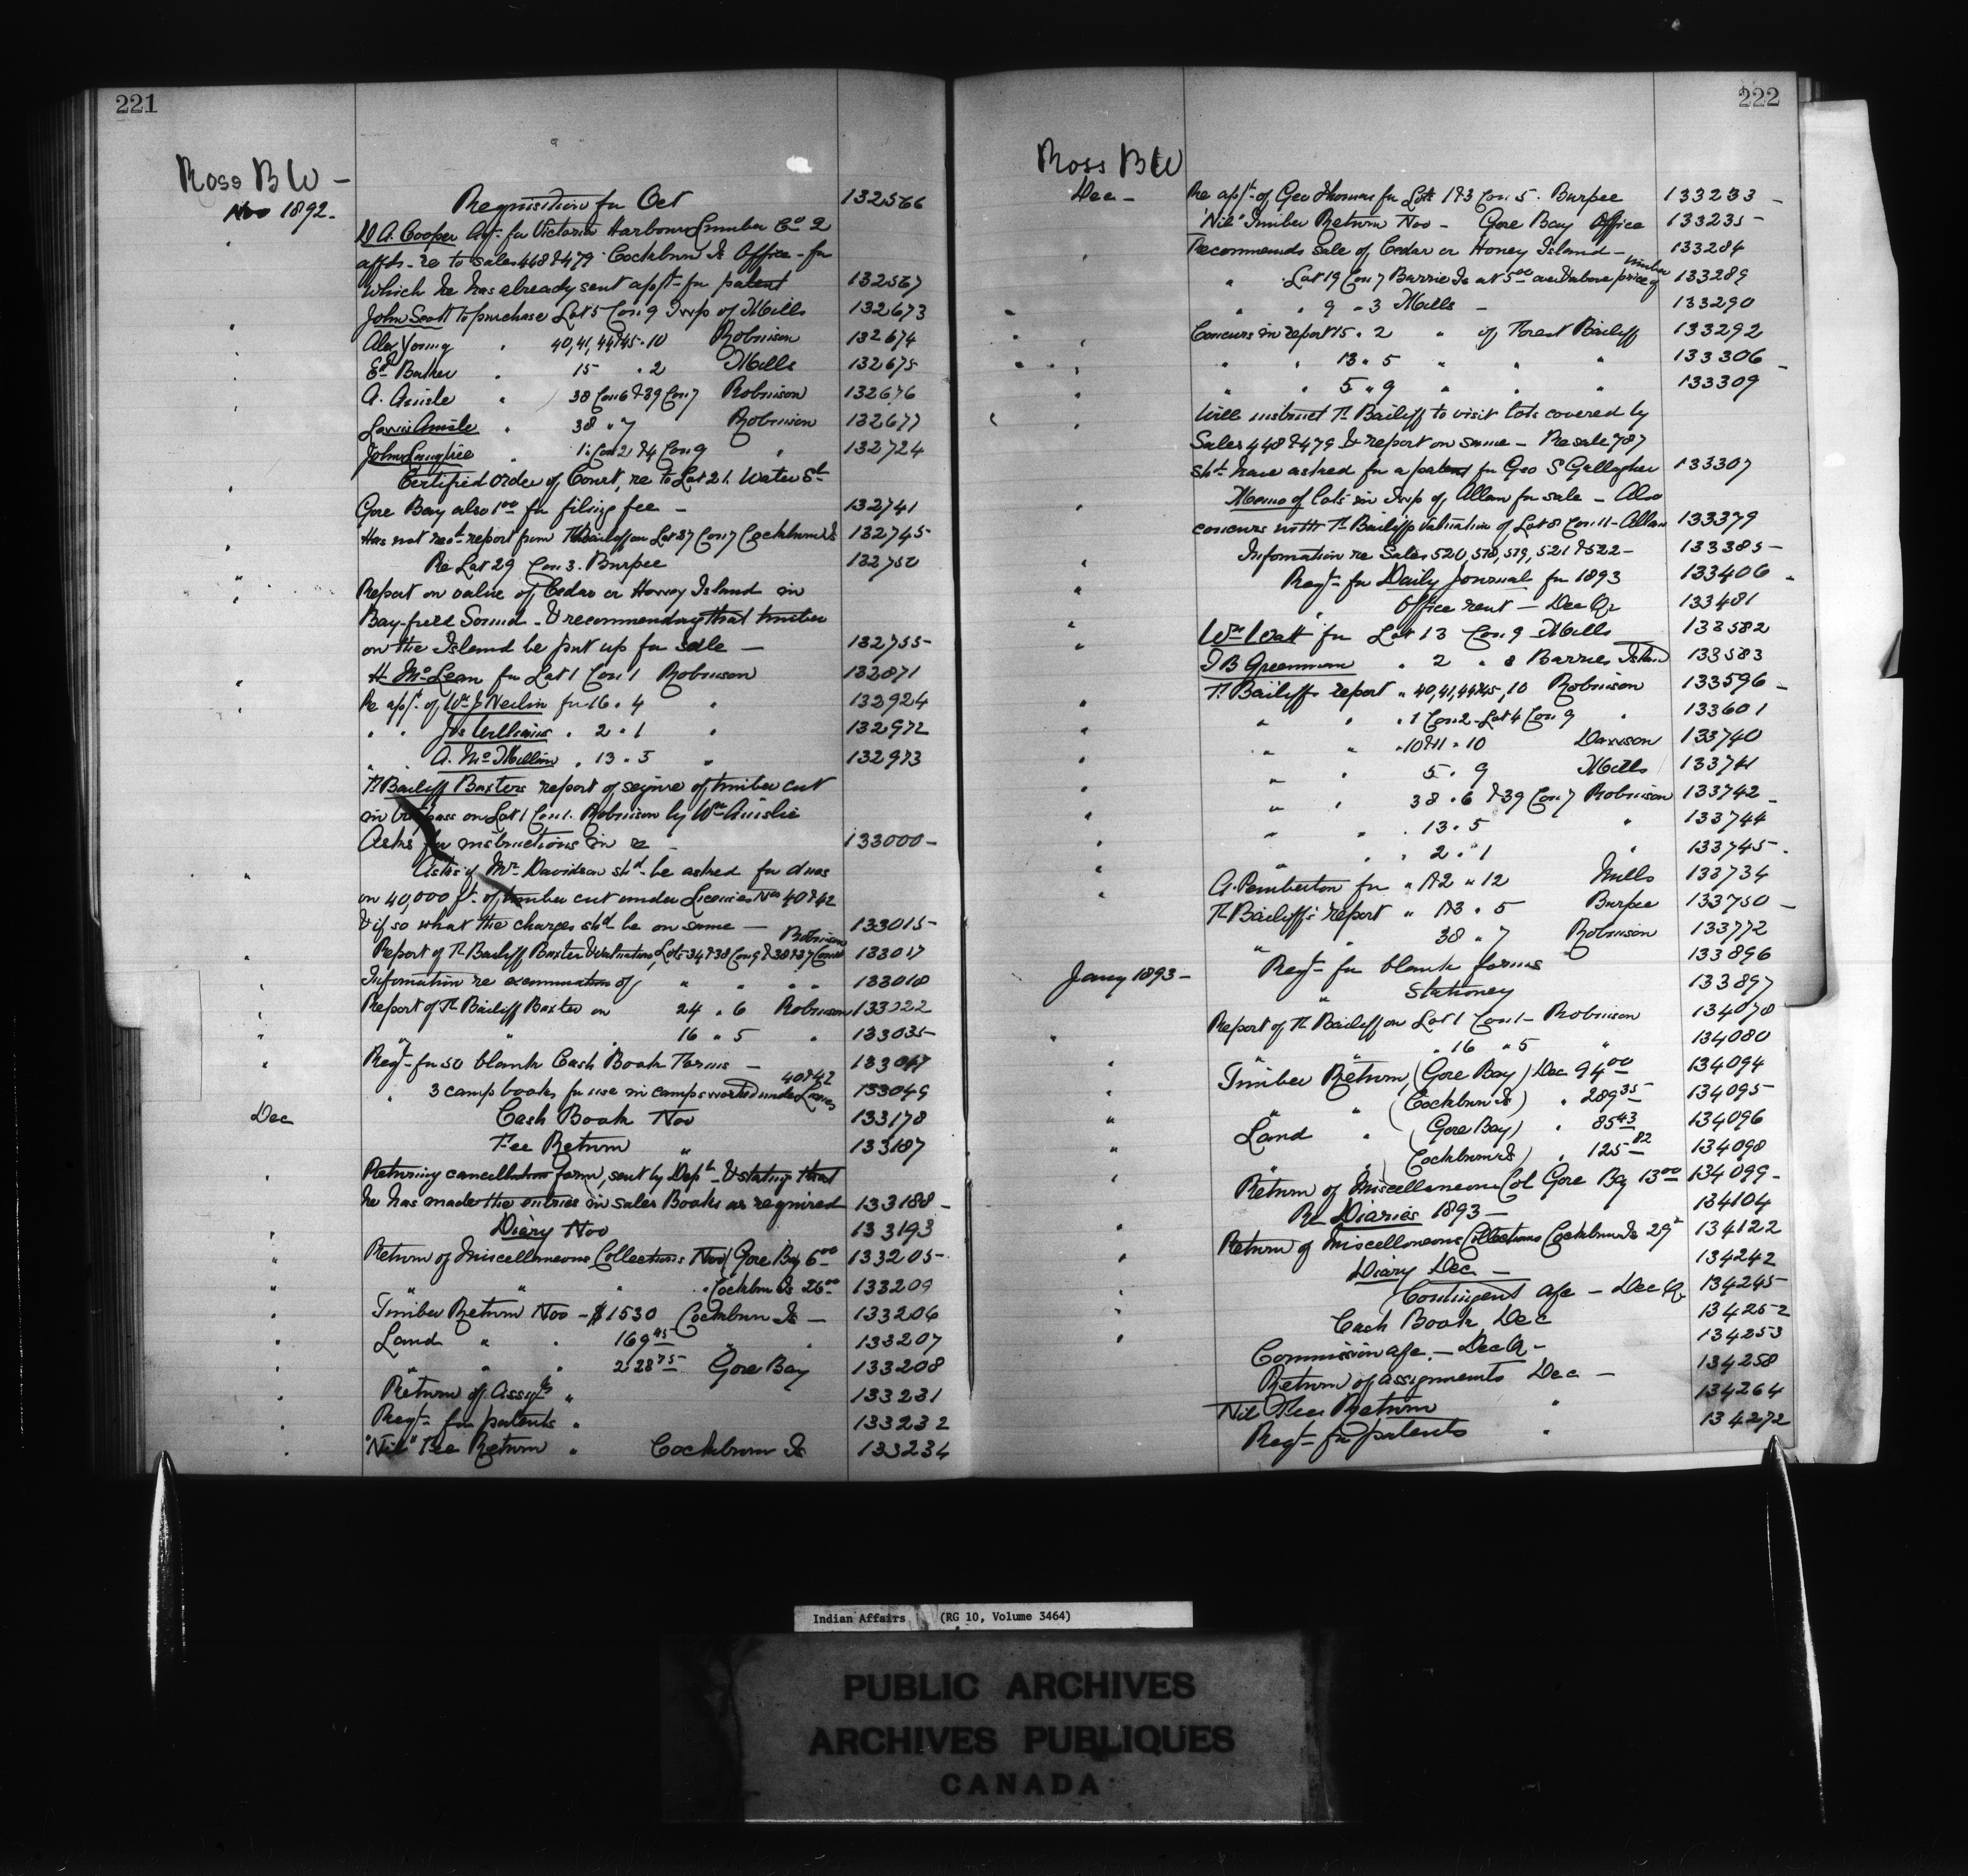 221
Ross B W -
Nov 1892 -
Requisition for Oct 132566
W A. Cooper Agt. for Victoria Harbour Lumber Co 2
affds. re to sales 448 & 479 Cockburn Is Office - for
which he has already sent appt for patent 132567
John Scott to purchase Lot 5 Con 9 Twp of Mills 132673
Alex Young " 40, 41, 44 & 45 . 10 Robinson 132674
Ed Barker " 15 . 2 Mills 132675
A. Ainslie " 38 Con 6 & 39 Con 7 Robinson 132676
Ainslie " 38 " 7 Robinson 132677
John " 1 Con 2 & 4 Con 9 " 132724
Certified order of Court, re to Lot 21. Water St
Gore Bay also 1 00 for filing fee - 132741
Has not recd report from F Bailiff on Lot 37 Con 7 Cockburn Is 132745 -
Re Lot 29 Con 3. Burpee 132750
Report on value of Cedar on Honey Island in
Bay-field Sound - & recommending that timber
on the Island be put up for sale - 132755 -
H. McLean for Lot 1 Con 1 Robinson 132871
Re appt. of Wm J Neilin for 16 . 4 " 132924
" " Jos Williams . 2 . 1 " 132972
" " A. McMillan . 13 . 5 " 132973
F Bailiff Baxters report of seizure of timber cut
in trespass on Lot 1 Con 1. Robinson by Wm Ainslie
Asks for instructions in re - 133000 -
Asks if Mr Davidson shd be asked for dues
on 40,000 ft. of timber cut under Licenses Nos 40 & 42
& if so what the charges shd be on same - 133015 -
Robinson
Report of F Bailiff Baxter & Valuation, Lots 34 & 38 Con 9 & 38 & 37 Con 133017
Information re examination of " " " 133018
Report of F Bailiff Baxter on 24 . 6 Robinson 133022
" " 16 " 5 " 133035 -
Reqt- for 50 blank Cash Book Forms - 133047
40 & 42
" 3 camp books for use in camps worked under Licenses 133049
Dec Cash Book Nov 133178
Fee Return " 133187
Returning cancellation form, sent by Dept & stating that
he has made the entries in sales Books as required 133188 -
Diary Nov 133193
Return of Miscellaneous Collections Nov (Gore Bay 6 00 133205 -
" " " Cockburn Is 26 00 133209
Timber Return Nov - $1530 Cockburn Is - 133206
Land " " 169 45 " " 133207
" " " 228 75 Gore Bay 133208
Return of Assigts " 133231
Reqt- for patents " 133232
"Nil" Fee Return " Cockburn Is 133234
222
Ross B W
Dec - Re appt- of Geo Thomas for Lots 1 & 3 Con 5. Burpee 133233 -
"Nil" Timber Return Nov - Gore Bay Office 133235 -
Recommends sale of Cedar on Honey Island - 133284
timber
" Lot 19 Con 7 Barrie Is at 5 00 and above price of 133289
" " 9 . 3 Mills - 133290
Concurs in report 15 . 2 " of Forest Bailiff 133292
" " 13 . 5 " " " 133306 -
" " 5 " 9 " " " 133309
Will instruct F Bailiff to visit lots covered by
Sales 448 & 479 & report on same - Re sale 787
shd have asked for a patent for Geo S Gallagher 133307
Memo of lots in Twp of Allan for sale - Also
concurs with F Bailiffs valuation of Lot 8 Con 11 - Allan 133379
Information re Sales 520, 518, 519, 521 & 522 - 133385 -
Reqt- for Daily Journal for 1893 133406 -
" Office rent - Dec Qr 133481
Wm Watt for Lot 13 Con 9 Mills 133582
J B Greenman " 2 . 8 Barrie Island 133583
F Bailiffs report " 40, 41, 44 & 45, 10 Robinson 133596 -
" " " 1 Con 2 - Lot 4 Con 9 " 133601
" " " 10 & 11 . 10 Dawson 133740
" " 5 . 9 Mills 133741
" " 38 . 6 & 39 Con 7 Robinson 133742 -
" " . 13 . 5 " 133744
" " . 2 . 1 " 133745 -
A. Pemberton for " 1 & 2 " 12 Mills 133734
F Bailiff's report " 1 & 3 . 5 Burpee 133750 -
" " 38 " 7 Robinson 133772
Reqt- for blank forms 133896
Jany 1893 - " Stationery 133897
Report of F Bailiff on Lot 1 Con 1 - Robinson 134078
" " . 16 " 5 " 134080
Timber Return, (Gore Bay) Dec 94 00 134094
" " (Cockburn Is) " 289 35 134095 -
Land " (Gore Bay) " 85 43 134096
" " (Cockburn Is) " 125 82 134098
Return of Miscellaneous Col Gore Bay 13 00 134099 -
Re Diaries 1893 - 134104
Return of Miscellaneous Collections Cockburn Is 29 134122
Diary Dec - 134242
Contingent a/c - Dec Q 134245 -
Cash Book Dec 134252
Commission a/c. - Dec Q - 134253
Return of assignments Dec - 134258
Nil Fee Return " 134264
Reqt- for patents " 134272
Indian Affairs (RG 10, Volume 3464)
PUBLIC ARCHIVES
ARCHIVES PUBLIQUES
CANADA